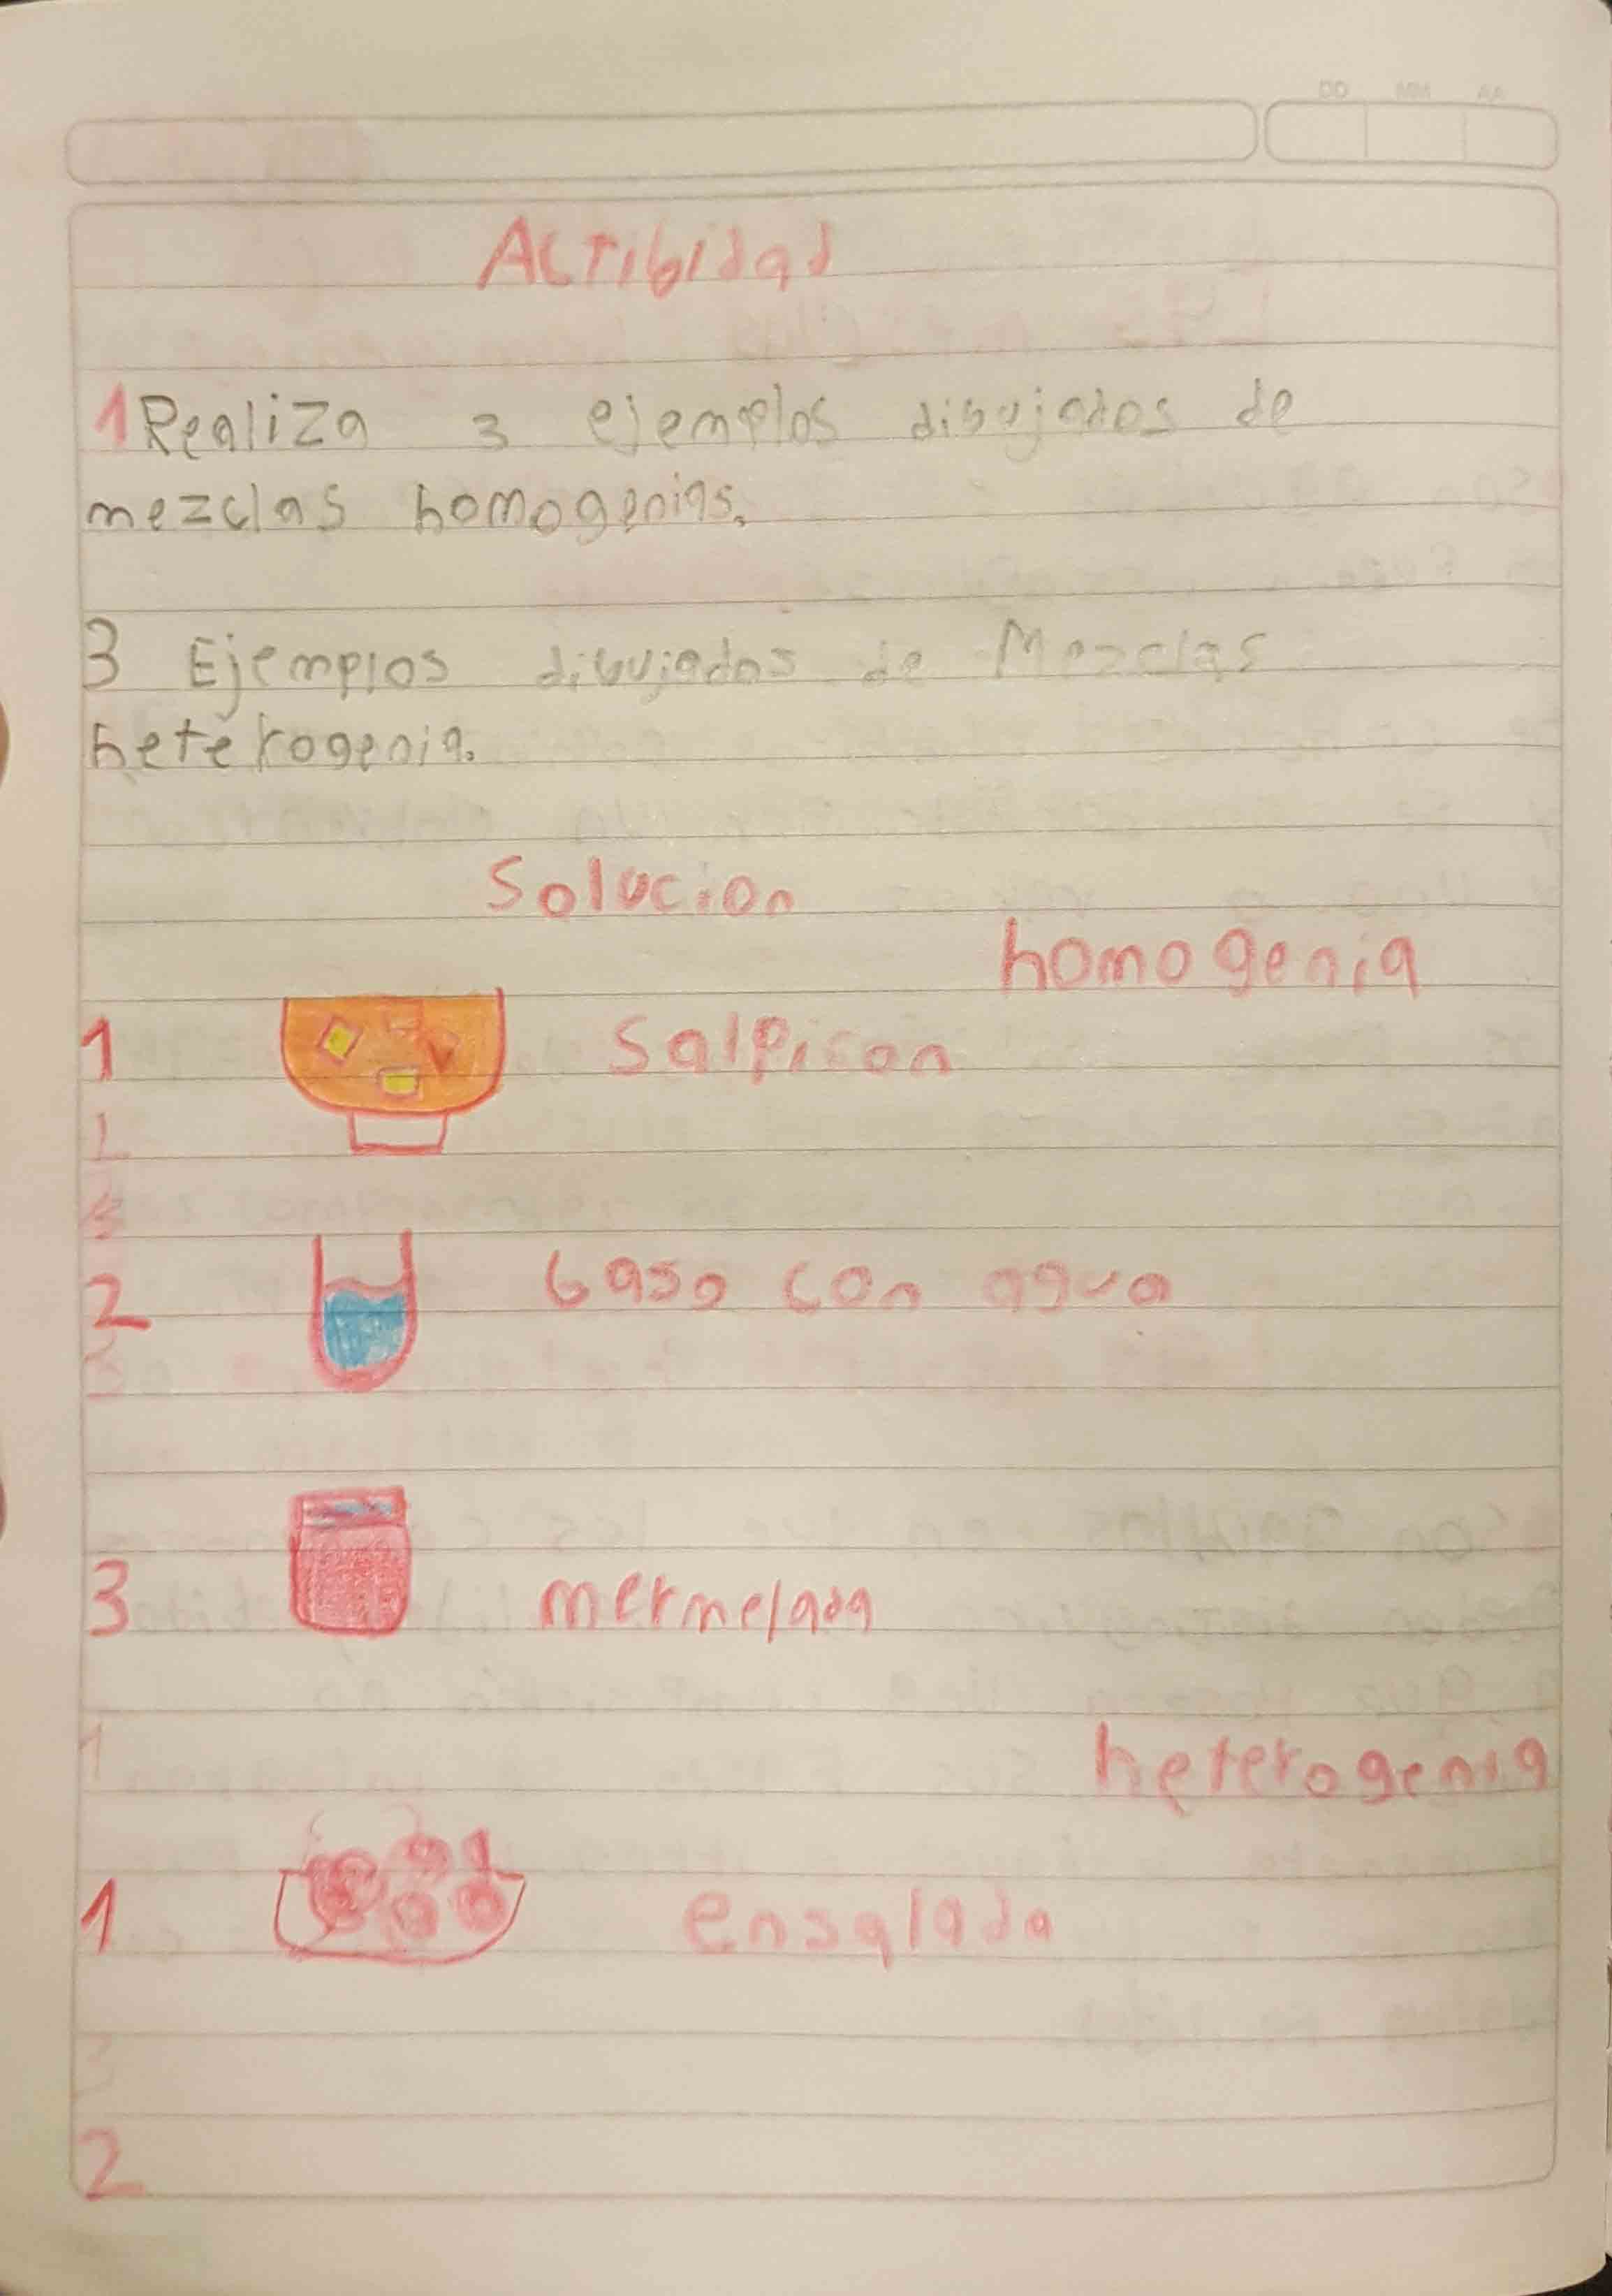 DD MM AA
Actibidad
1 Realiza 3 ejemplos dibujados de
mezclas homogenias.
3 Ejemplos dibujados de Mezclas
heterogenia.
Solucion
homogenia
1 Salpicon
2 baso con agua
3 mermelada
heterogenia
1 ensalada
2